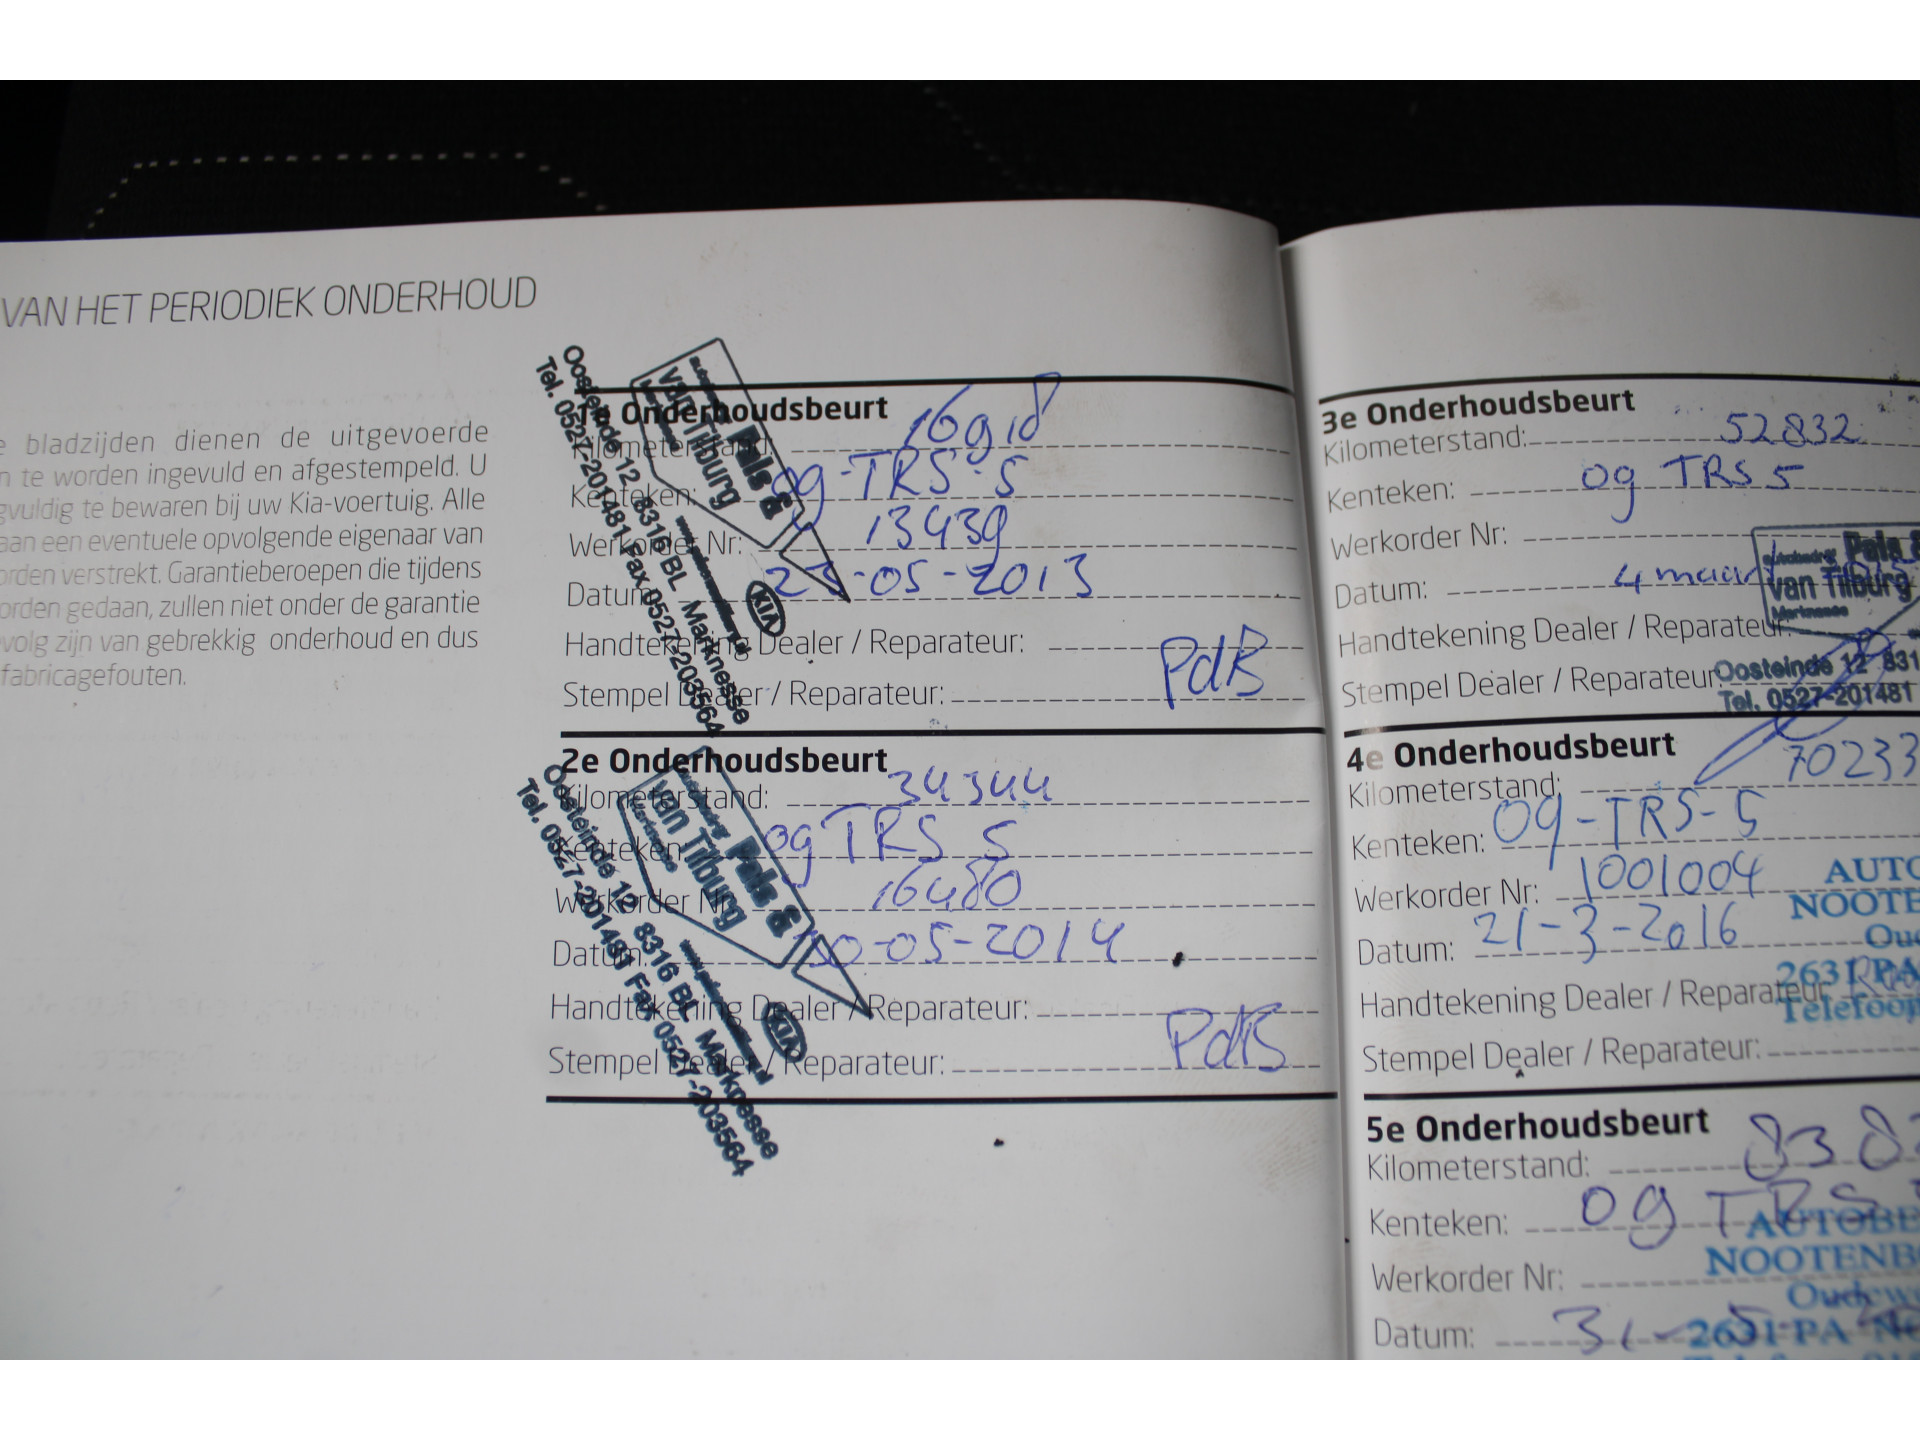 VAN HET PERIODIEK ONDERHOUD
e bladzijden dienen de uitgevoerde
n te worden ingevuld en afgestempeld. U
gvuldig te bewaren bij uw Kia-voertuig. Alle
aan een eventuele opvolgende eigenaar van
orden verstrekt. Garantieberoepen die tijdens
orden gedaan, zullen niet onder de garantie
volg zijn van gebrekkig onderhoud en dus
fabricagefouten.
1e Onderhoudsbeurt
Kilometerstand: 16918
Kenteken: 09-TRS-5
Werkorder Nr: 13439
Datum: 23-05-2013
Handtekening Dealer / Reparateur:
Stempel Dealer / Reparateur: PdB
Pals &
van Tilburg
KIA
Oosteinde 12 8316 BL Marknesse
Tel. 0527-201481 Fax 0527-203564
2e Onderhoudsbeurt
Kilometerstand: 34344
Kenteken: 09 TRS 5
Werkorder Nr: 16480
Datum: 20-05-2014
Handtekening Dealer / Reparateur:
Stempel Dealer / Reparateur: PdB
Autobedrijf Pals &
van Tilburg
Marknesse
KIA
Oosteinde 12 8316 BL Marknesse
Tel. 0527-201481 Fax 0527-203564
3e Onderhoudsbeurt
Kilometerstand: 52832
Kenteken: 09 TRS 5
Werkorder Nr:
Datum: 4 maart
Handtekening Dealer / Reparateur:
Stempel Dealer / Reparateur:
Autobedrijf Pals &
van Tilburg
Marknesse
Oosteinde 12 831
Tel. 0527-201481
4e Onderhoudsbeurt
Kilometerstand: 70233
Kenteken: 09-TRS-5
Werkorder Nr: 1001004
Datum: 21-3-2016
Handtekening Dealer / Reparateur:
Stempel Dealer / Reparateur:
AUTO
NOOTE
Oud
2631 PA
Telefoon
5e Onderhoudsbeurt
Kilometerstand: 838
Kenteken: 09 TRS
Werkorder Nr:
Datum: 31-5-
AUTOBE
NOOTENB
Oudew
2631 PA NO